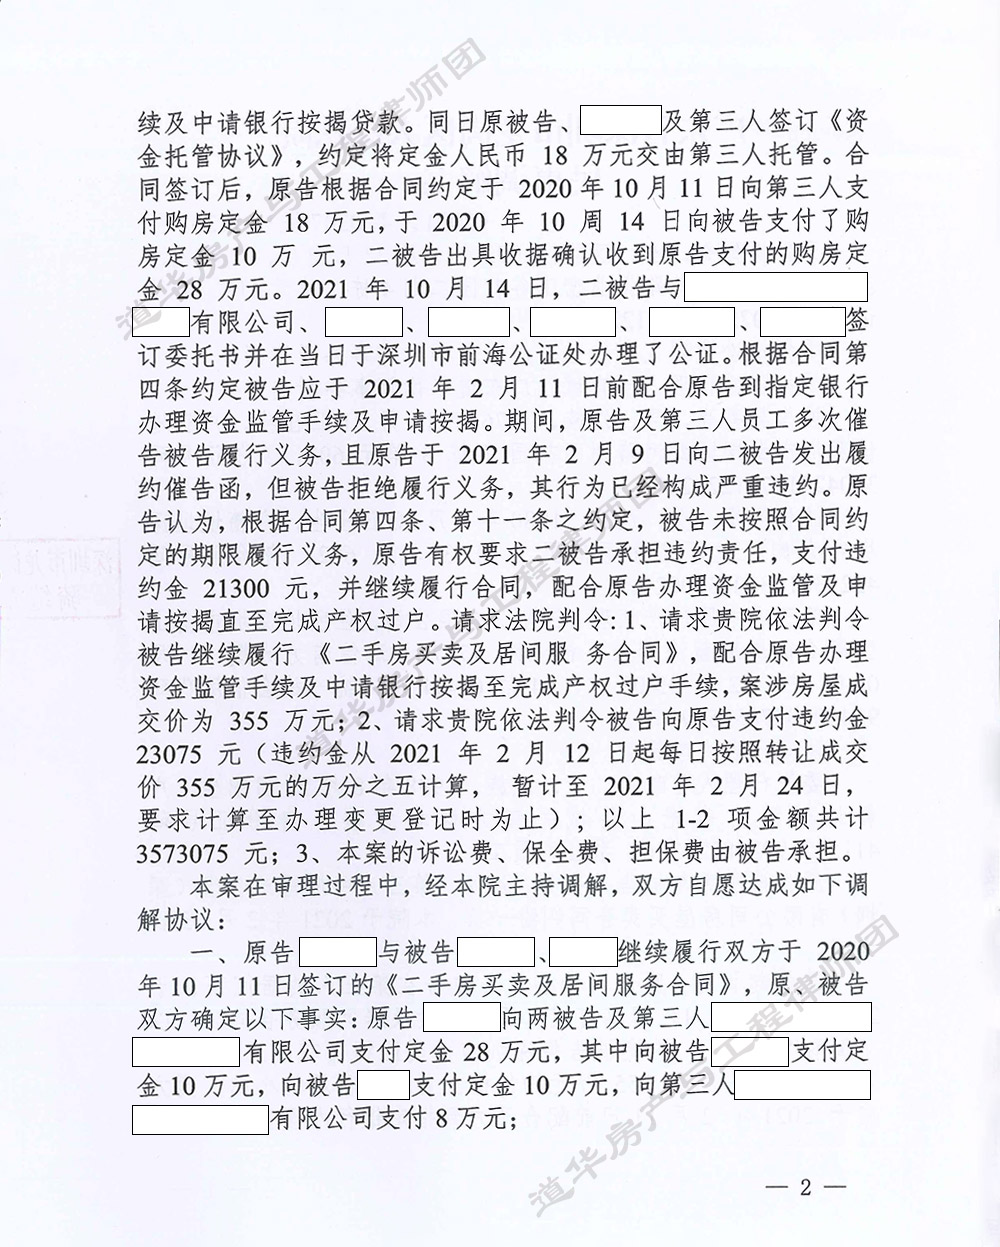 续及中请银行按揭贷款。同日原被告、及第三人签订《资
金托管协议》，约定将定金人民币 18 万元交由第三人托管。合
同签订后，原告根据合同约定于 2020 年 10 月 11 日向第三人支
付购房定金 18 万元，于 2020 年 10 周 14 日向被告支付了购
房定金 10 万 元，二被告出具收据确认收到原告支付的购房定
金 28 万元。2021 年 10 月 14 日，二被告与
有限公司、、、、、签
订委托书并在当日于深圳市前海公证处办理了公证。根据合同第
四条约定被告应于 2021 年 2 月 11 日前配合原告到指定银行
办理资金监管手续及申请按揭。期间，原告及第三人员工多次催
告被告履行义务，且原告于 2021 年 2 月 9 日向二被告发出履
约催告函，但被告拒绝履行义务，其行为已经构成严重违约。原
告认为，根据合同第四条、第十一条之约定，被告未按照合同约
定的期限履行义务，原告有权要求二被告承担违约责任，支付违
约金 21300 元，并继续履行合同，配合原告办理资金监管及申
请按揭直至完成产权过户。请求法院判令：1、请求贵院依法判令
被告继续履行 《二手房买卖及居间服 务合同》，配合原告办理
资金监管手续及中请银行按揭至完成产权过户手续，案涉房屋成
交价为 355 万元；2、请求贵院依法判令被告向原告支付违约金
23075 元（违约金从 2021 年 2 月 12 日起每日按照转让成交
价 355 万元的万分之五计算， 暂计至 2021 年 2 月 24 日，
要求计算至办理变更登记时为止）；以上 1-2 项金额共计
3573075 元；3、本案的诉讼费、保全费、担保费由被告承担。
本案在审理过程中，经本院主持调解，双方自愿达成如下调
解协议：
一、原告与被告、继续履行双方于 2020
年 10 月 11 日签订的《二手房买卖及居间服务合同》，原、被告
双方确定以下事实：原告向两被告及第三人
有限公司支付定金 28 万元，其中向被告支付定
金 10 万元，向被告支付定金 10 万元，向第三人
有限公司支付 8 万元；
— 2 —
道华房产与工程律师团
道华房产与工程律师团
道华房产与工程律师团